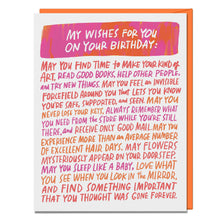 MY WISHES FOR YOU
ON YOUR BIRTHDAY:
MAY YOU FIND TIME TO MAKE YOUR KIND OF
ART, READ GOOD BOOKS, HELP OTHER PEOPLE,
AND TRY NEW THINGS. MAY YOU FEEL AN INVISIBLE
FORCEFIELD AROUND YOU THAT LETS YOU KNOW
YOU'RE SAFE, SUPPORTED, AND SEEN. MAY YOU
NEVER LOSE YOUR KEYS, ALWAYS REMEMBER WHAT
YOU NEED FROM THE STORE WHILE YOU'RE STILL
THERE, AND RECEIVE ONLY GOOD MAIL. MAY YOU
EXPERIENCE MORE THAN AN AVERAGE NUMBER
OF EXCELLENT HAIR DAYS. MAY FLOWERS
MYSTERIOUSLY APPEAR ON YOUR DOORSTEP.
MAY YOU SLEEP LIKE A BABY, LOVE WHAT
YOU SEE WHEN YOU LOOK IN THE MIRROR,
AND FIND SOMETHING IMPORTANT
THAT YOU THOUGHT WAS GONE FOREVER.